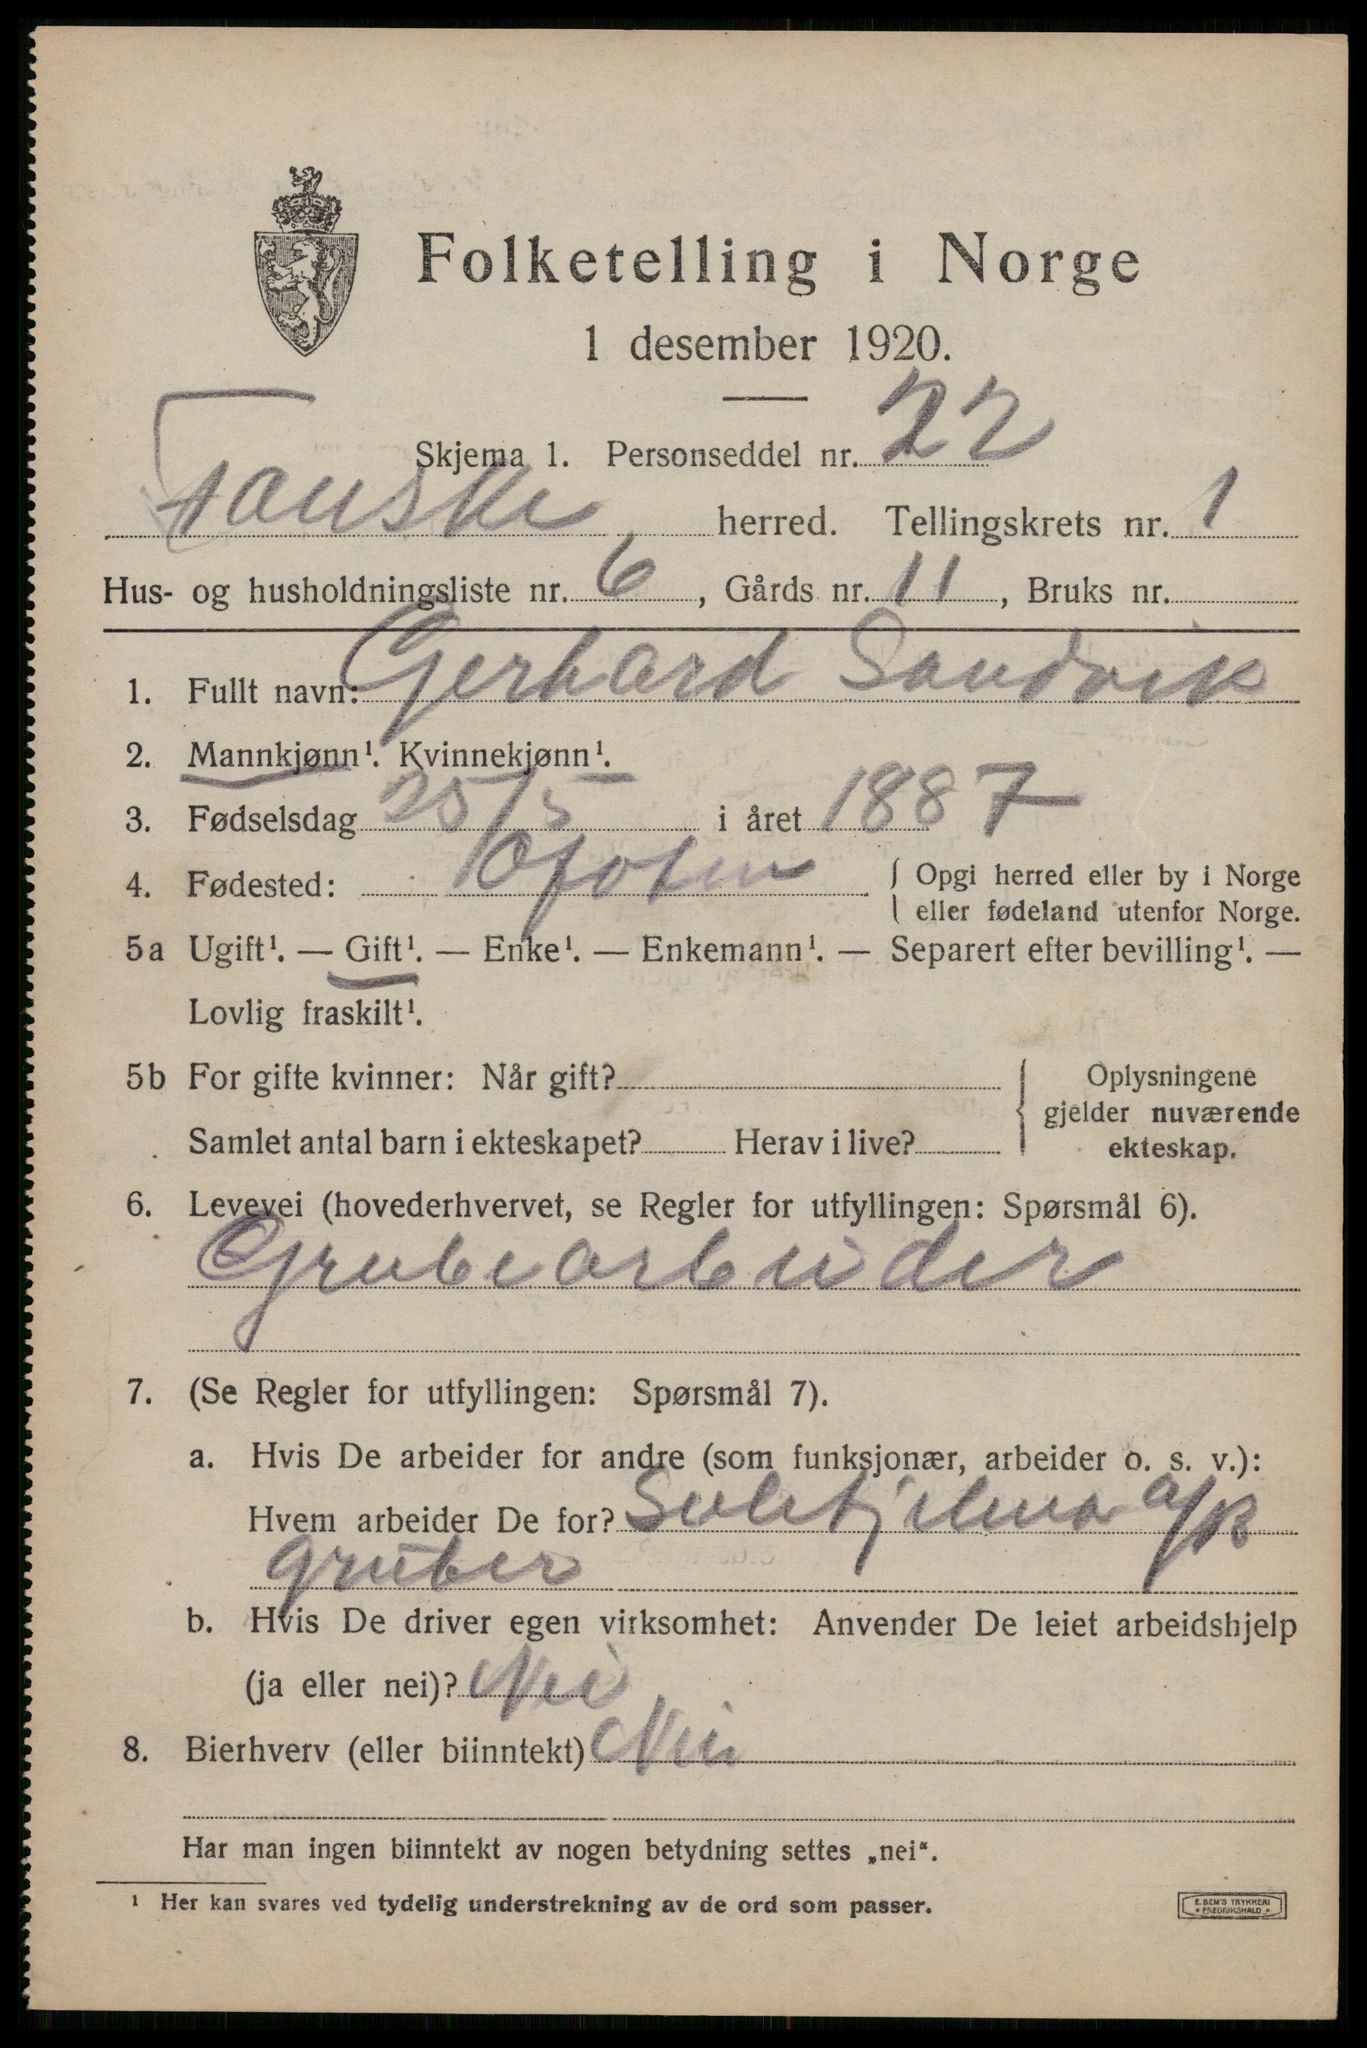 Folketelling i Norge
1 desember 1920.
Skjema 1. Personseddel nr. 22
Fauske herred. Tellingskrets nr. 1
Hus- og husholdningsliste nr. 6, Gårds nr. 11, Bruks nr.
1. Fullt navn: Gerhard Sandvik
2. Mannkjønn¹. Kvinnekjønn¹.
3. Fødselsdag 25/5 i året 1887
4. Fødested: Ofoten { Opgi herred eller by i Norge
eller fødeland utenfor Norge.
5a Ugift¹. — Gift¹. — Enke¹. — Enkemann¹. — Separert efter bevilling¹. —
Lovlig fraskilt¹.
5b For gifte kvinner: Når gift? { Oplysningene
gjelder nuværende
Samlet antal barn i ekteskapet? Herav i live? ekteskap.
6. Levevei (hovederhvervet, se Regler for utfyllingen: Spørsmål 6).
Grubearbeider
7. (Se Regler for utfyllingen: Spørsmål 7).
a. Hvis De arbeider for andre (som funksjonær, arbeider o. s. v.):
Hvem arbeider De for? Sulitjelma
gruber
b. Hvis De driver egen virksomhet: Anvender De leiet arbeidshjelp
(ja eller nei)? Nei
8. Bierhverv (eller biinntekt) Nei
Har man ingen biinntekt av nogen betydning settes „nei“.
¹ Her kan svares ved tydelig understrekning av de ord som passer.
E. SEM'S TRYKKERI
* FREDRIKSHALD *